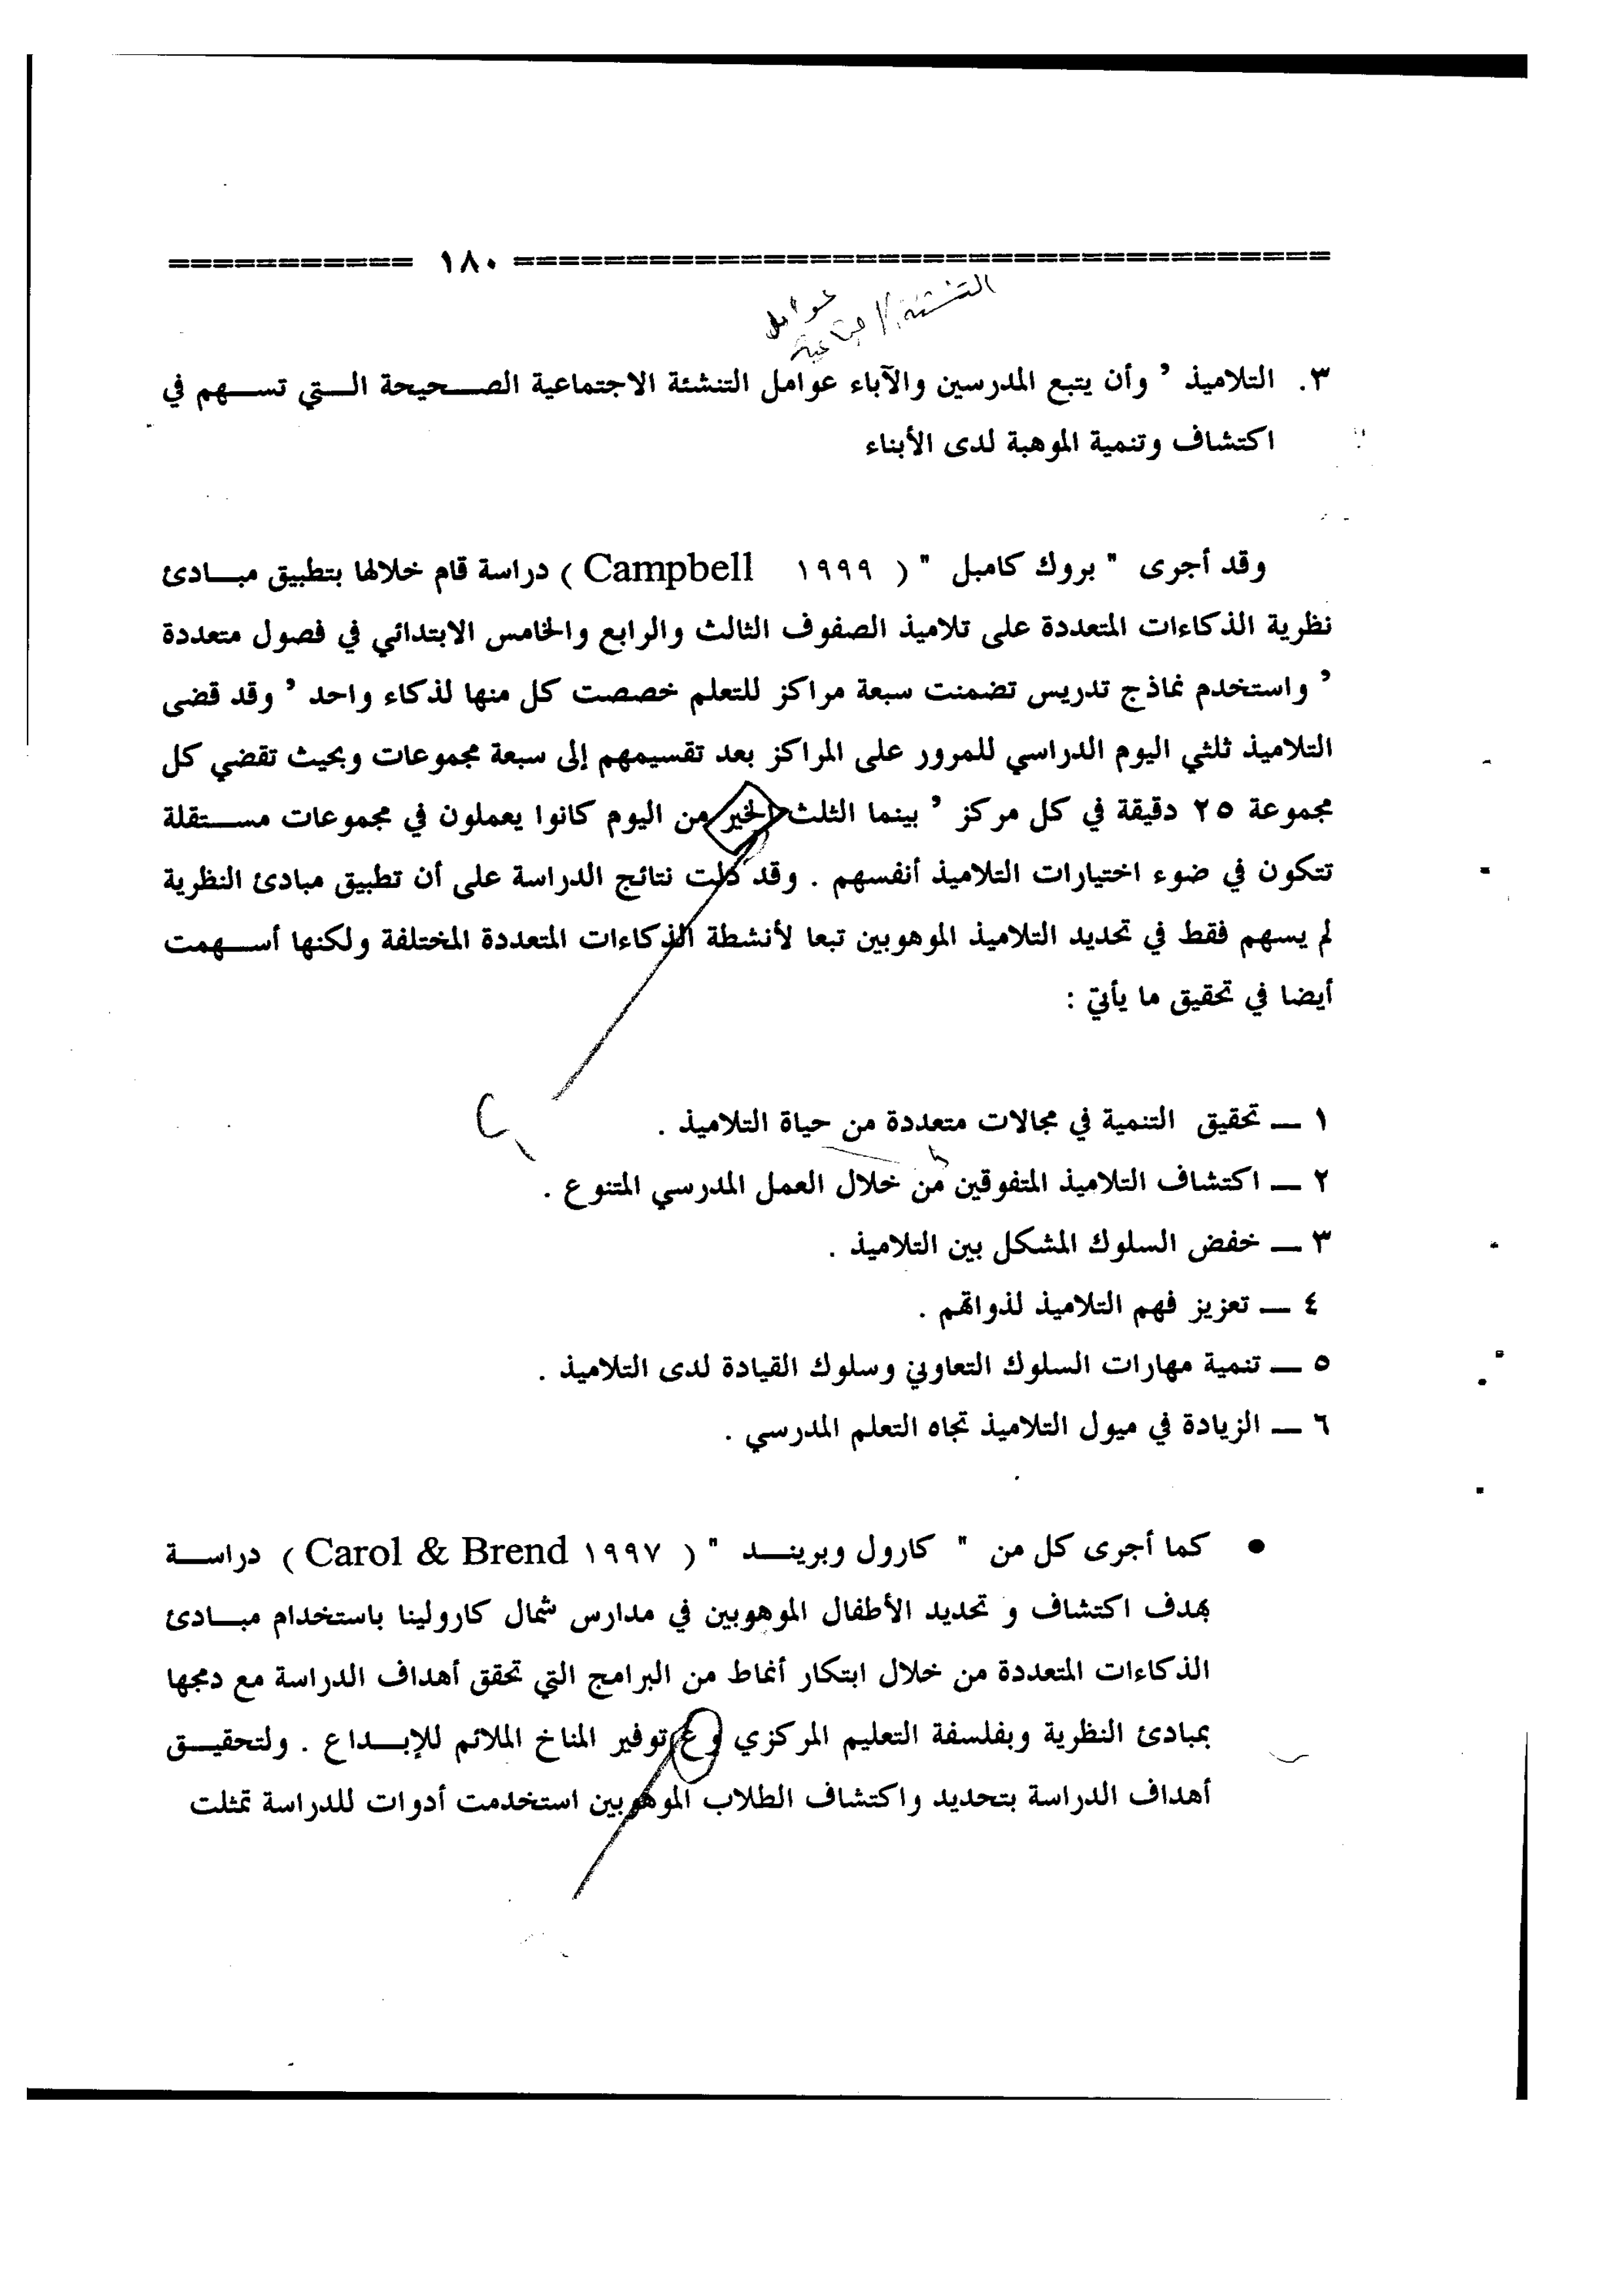 =================================== ١٨٠ ===========
عوامل التنشئة الاجتماعية
٣. التلاميذ ، وأن يتبع المدرسين والآباء عوامل التنشئة الاجتماعية الصـــحيحة الـــتي تســـهم في
اكتشاف وتنمية الموهبة لدى الأبناء
وقد أجرى " بروك كامبل " ( Campbell ١٩٩٩ ) دراسة قام خلالها بتطبيق مبـــادئ
نظرية الذكاءات المتعددة على تلاميذ الصفوف الثالث والرابع والخامس الابتدائي في فصول متعددة
، واستخدم نماذج تدريس تضمنت سبعة مراكز للتعلم خصصت كل منها لذكاء واحد ، وقد قضى
التلاميذ ثلثي اليوم الدراسي للمرور على المراكز بعد تقسيمهم إلى سبعة مجموعات وبحيث تقضي كل
مجموعة ٢٥ دقيقة في كل مركز ، بينما الثلث الخير من اليوم كانوا يعملون في مجموعات مســـتقلة
تتكون في ضوء اختيارات التلاميذ أنفسهم . وقد دلت نتائج الدراسة على أن تطبيق مبادئ النظرية
لم يسهم فقط في تحديد التلاميذ الموهوبين تبعا لأنشطة الذكاءات المتعددة المختلفة ولكنها أســـهمت
أيضا في تحقيق ما يأتي :
١ – تحقيق التنمية في مجالات متعددة من حياة التلاميذ .
٢ – اكتشاف التلاميذ المتفوقين من خلال العمل المدرسي المتنوع .
٣ – خفض السلوك المشكل بين التلاميذ .
٤ – تعزيز فهم التلاميذ لذواتهم .
٥ – تنمية مهارات السلوك التعاوني وسلوك القيادة لدى التلاميذ .
٦ – الزيادة في ميول التلاميذ تجاه التعلم المدرسي .
● كما أجرى كل من " كارول وبرينـــد " ( Carol & Brend ١٩٩٧ ) دراســـة
بهدف اكتشاف و تحديد الأطفال الموهوبين في مدارس شمال كارولينا باستخدام مبـــادئ
الذكاءات المتعددة من خلال ابتكار أنماط من البرامج التي تحقق أهداف الدراسة مع دمجها
بمبادئ النظرية وبفلسفة التعليم المركزي وع توفير المناخ الملائم للإبـــداع . ولتحقيـــق
أهداف الدراسة بتحديد واكتشاف الطلاب الموهوبين استخدمت أدوات للدراسة تمثلت